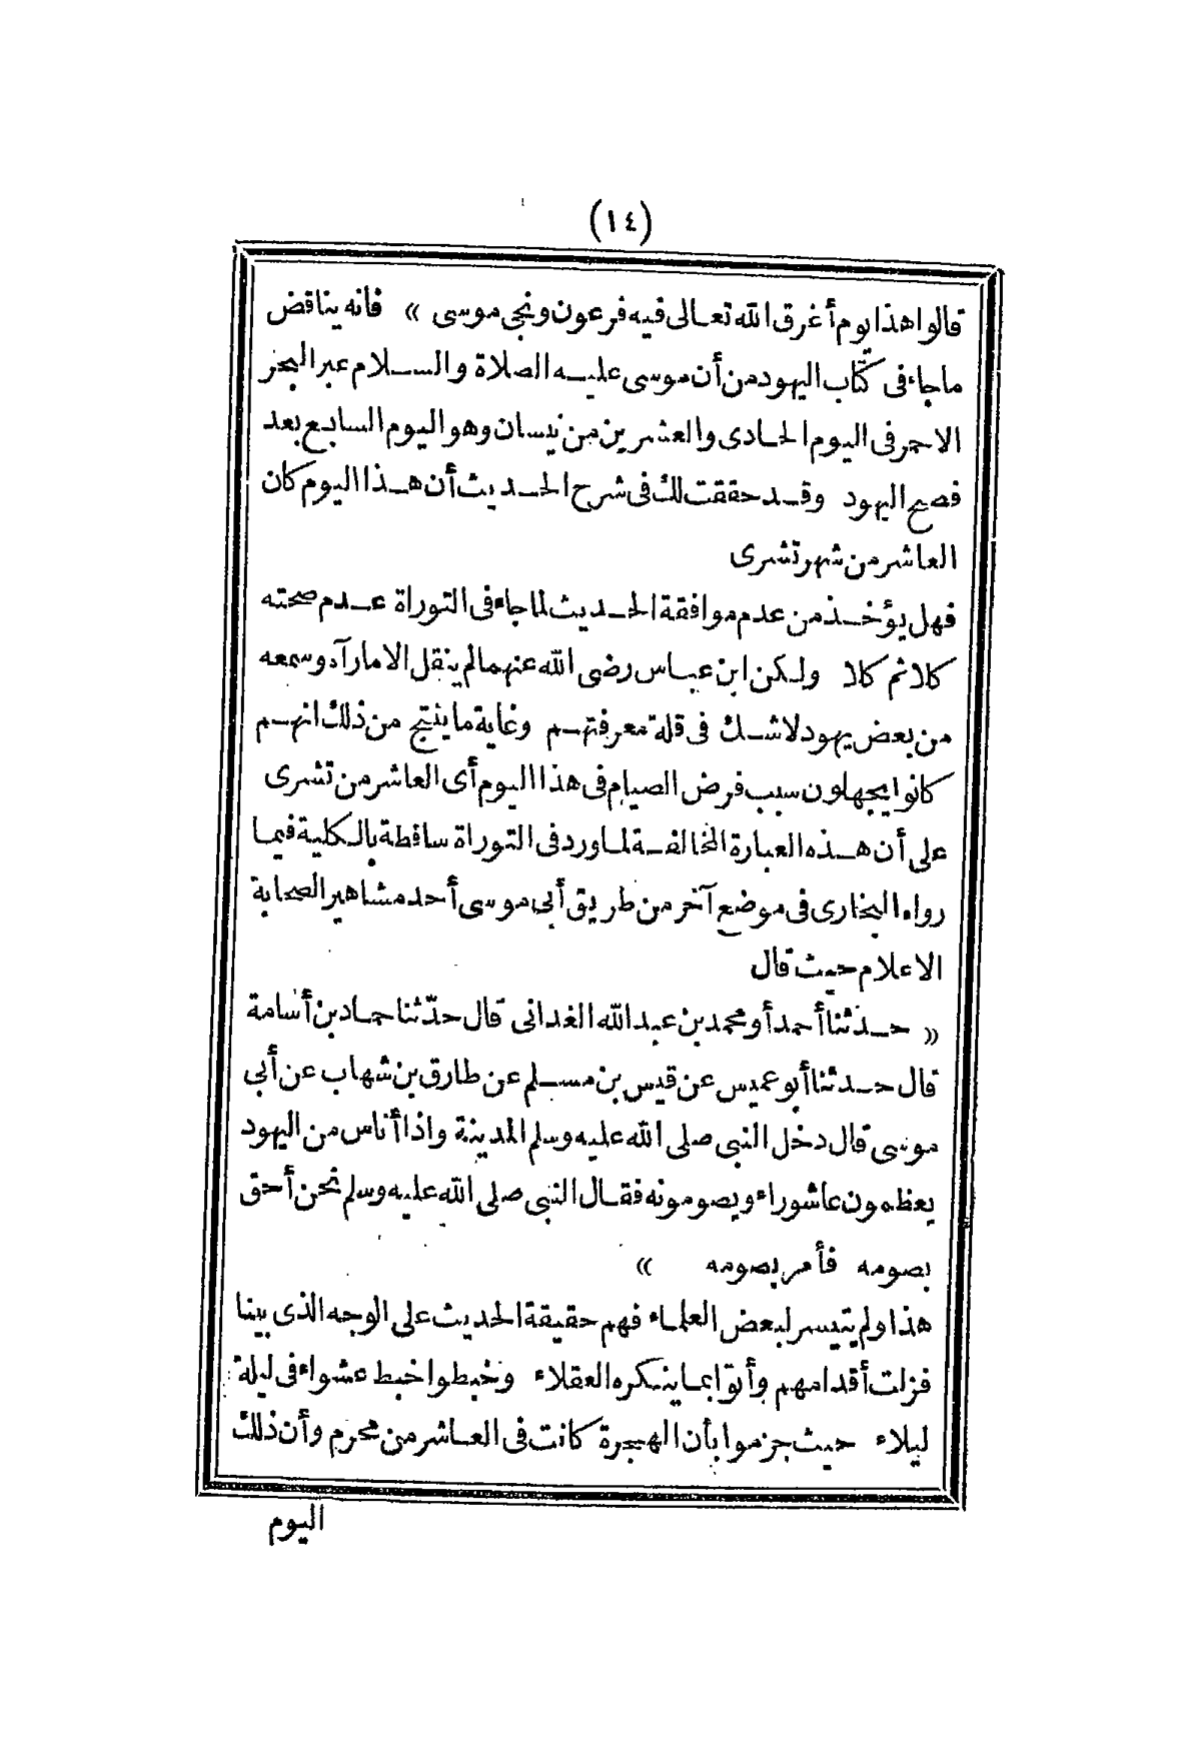 (١٤)
قالوا هذا يوم أغرق الله تعالى فيه فرعون ونجى موسى » فانه يناقض
ماجاء فى كتاب اليهود من أن موسى عليه الصلاة والسلام عبر البحر
الاحمر فى اليوم الحادى والعشرين من نيسان وهو اليوم السابع بعد
فصح اليهود وقد حققت لك فى شرح الحديث أن هذا اليوم كان
العاشر من شهر تشرى
فهل يؤخذ من عدم موافقة الحديث لما جاء فى التوراة عدم صحته
كلا ثم كلا ولكن ابن عباس رضى الله عنهما لم ينقل الا مارآه وسمعه
من بعض يهود لاشك فى قلة معرفتهم وغاية ما ينتج من ذلك انهم
كانوا يجهلون سبب فرض الصيام فى هذا اليوم أى العاشر من تشرى
على أن هذه العبارة المخالفة لما ورد فى التوراة ساقطة بالكلية فيما
رواه البخارى فى موضع آخر من طريق أبى موسى أحد مشاهير الصحابة
الاعلام حيث قال
« حدثنا أحمد أو محمد بن عبد الله الغدانى قال حدّثنا حماد بن أسامة
قال حدثنا أبو عميس عن قيس بن مسلم عن طارق بن شهاب عن أبى
موسى قال دخل النبى صلى الله عليه وسلم المدينة واذا أناس من اليهود
يعظمون عاشوراء ويصومونه فقال النبى صلى الله عليه وسلم نحن أحق
بصومه فأمر بصومه »
هذا ولم يتيسر لبعض العلماء فهم حقيقة الحديث على الوجه الذى بينا
فزلت أقدامهم وأتوا بما ينكره العقلاء وخبطوا خبط عشواء فى ليلة
ليلاء حيث جزموا بأن الهجرة كانت فى العاشر من محرم وأن ذلك
اليوم